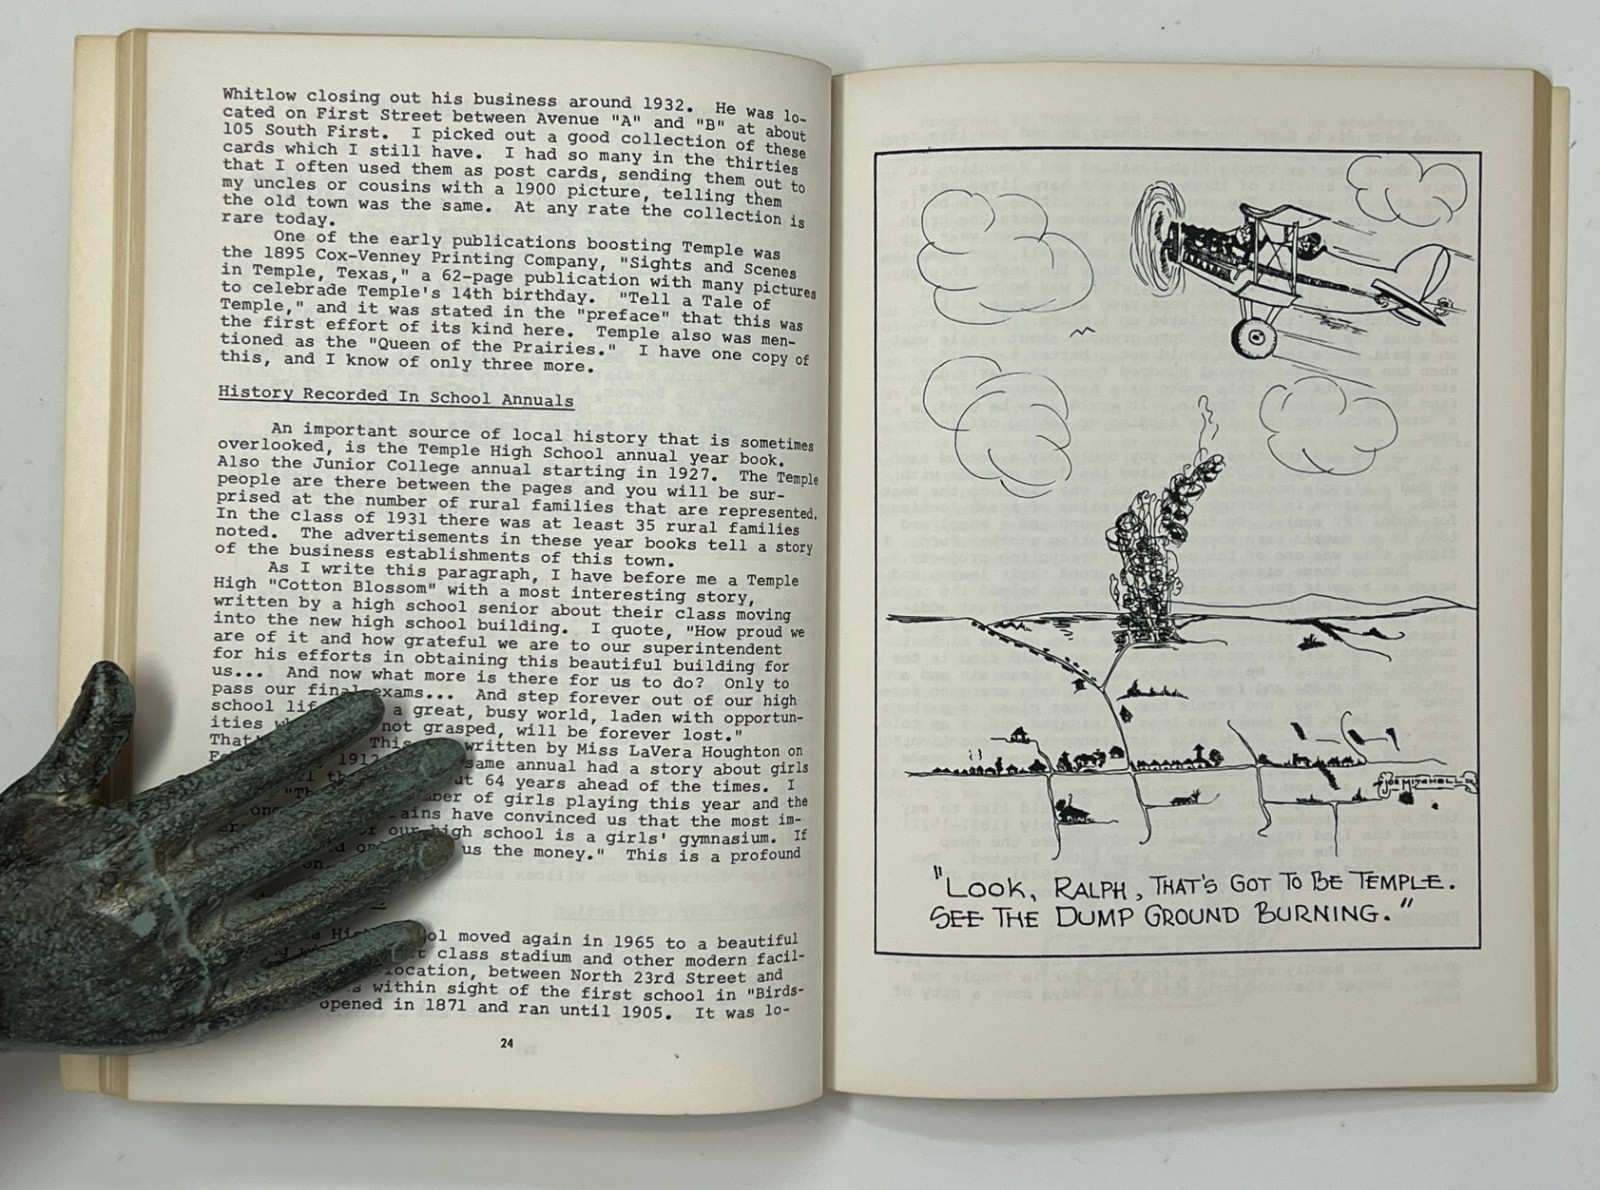 Whitlow closing out his business around 1932. He was lo-
cated on First Street between Avenue "A" and "B" at about
105 South First. I picked out a good collection of these
cards which I still have. I had so many in the thirties
that I often used them as post cards, sending them out to
my uncles or cousins with a 1900 picture, telling them
the old town was the same. At any rate the collection is
rare today.
One of the early publications boosting Temple was
the 1895 Cox-Venney Printing Company, "Sights and Scenes
in Temple, Texas," a 62-page publication with many pictures
to celebrade Temple's 14th birthday. "Tell a Tale of
Temple," and it was stated in the "preface" that this was
the first effort of its kind here. Temple also was men-
tioned as the "Queen of the Prairies." I have one copy of
this, and I know of only three more.
History Recorded In School Annuals
An important source of local history that is sometimes
overlooked, is the Temple High School annual year book.
Also the Junior College annual starting in 1927. The Temple
people are there between the pages and you will be sur-
prised at the number of rural families that are represented.
In the class of 1931 there was at least 35 rural families
noted. The advertisements in these year books tell a story
of the business establishments of this town.
As I write this paragraph, I have before me a Temple
High "Cotton Blossom" with a most interesting story,
written by a high school senior about their class moving
into the new high school building. I quote, "How proud we
are of it and how grateful we are to our superintendent
for his efforts in obtaining this beautiful building for
us... And now what more is there for us to do? Only to
pass our final exams... And step forever out of our high
school a great, busy world, laden with opportun-
ities not grasped, will be forever lost."
This written by Miss LaVera Houghton on
1912 same annual had a story about girls
64 years ahead of the times. I
"The of girls playing this year and the
have convinced us that the most im-
our high school is a girls' gymnasium. If
us the money." This is a profound
moved again in 1965 to a beautiful
class stadium and other modern facil-
location, between North 23rd Street and
within sight of the first school in "Birds-
opened in 1871 and ran until 1905. It was lo-
24
JOE MITCHELL
"LOOK, RALPH, THAT'S GOT TO BE TEMPLE.
SEE THE DUMP GROUND BURNING."